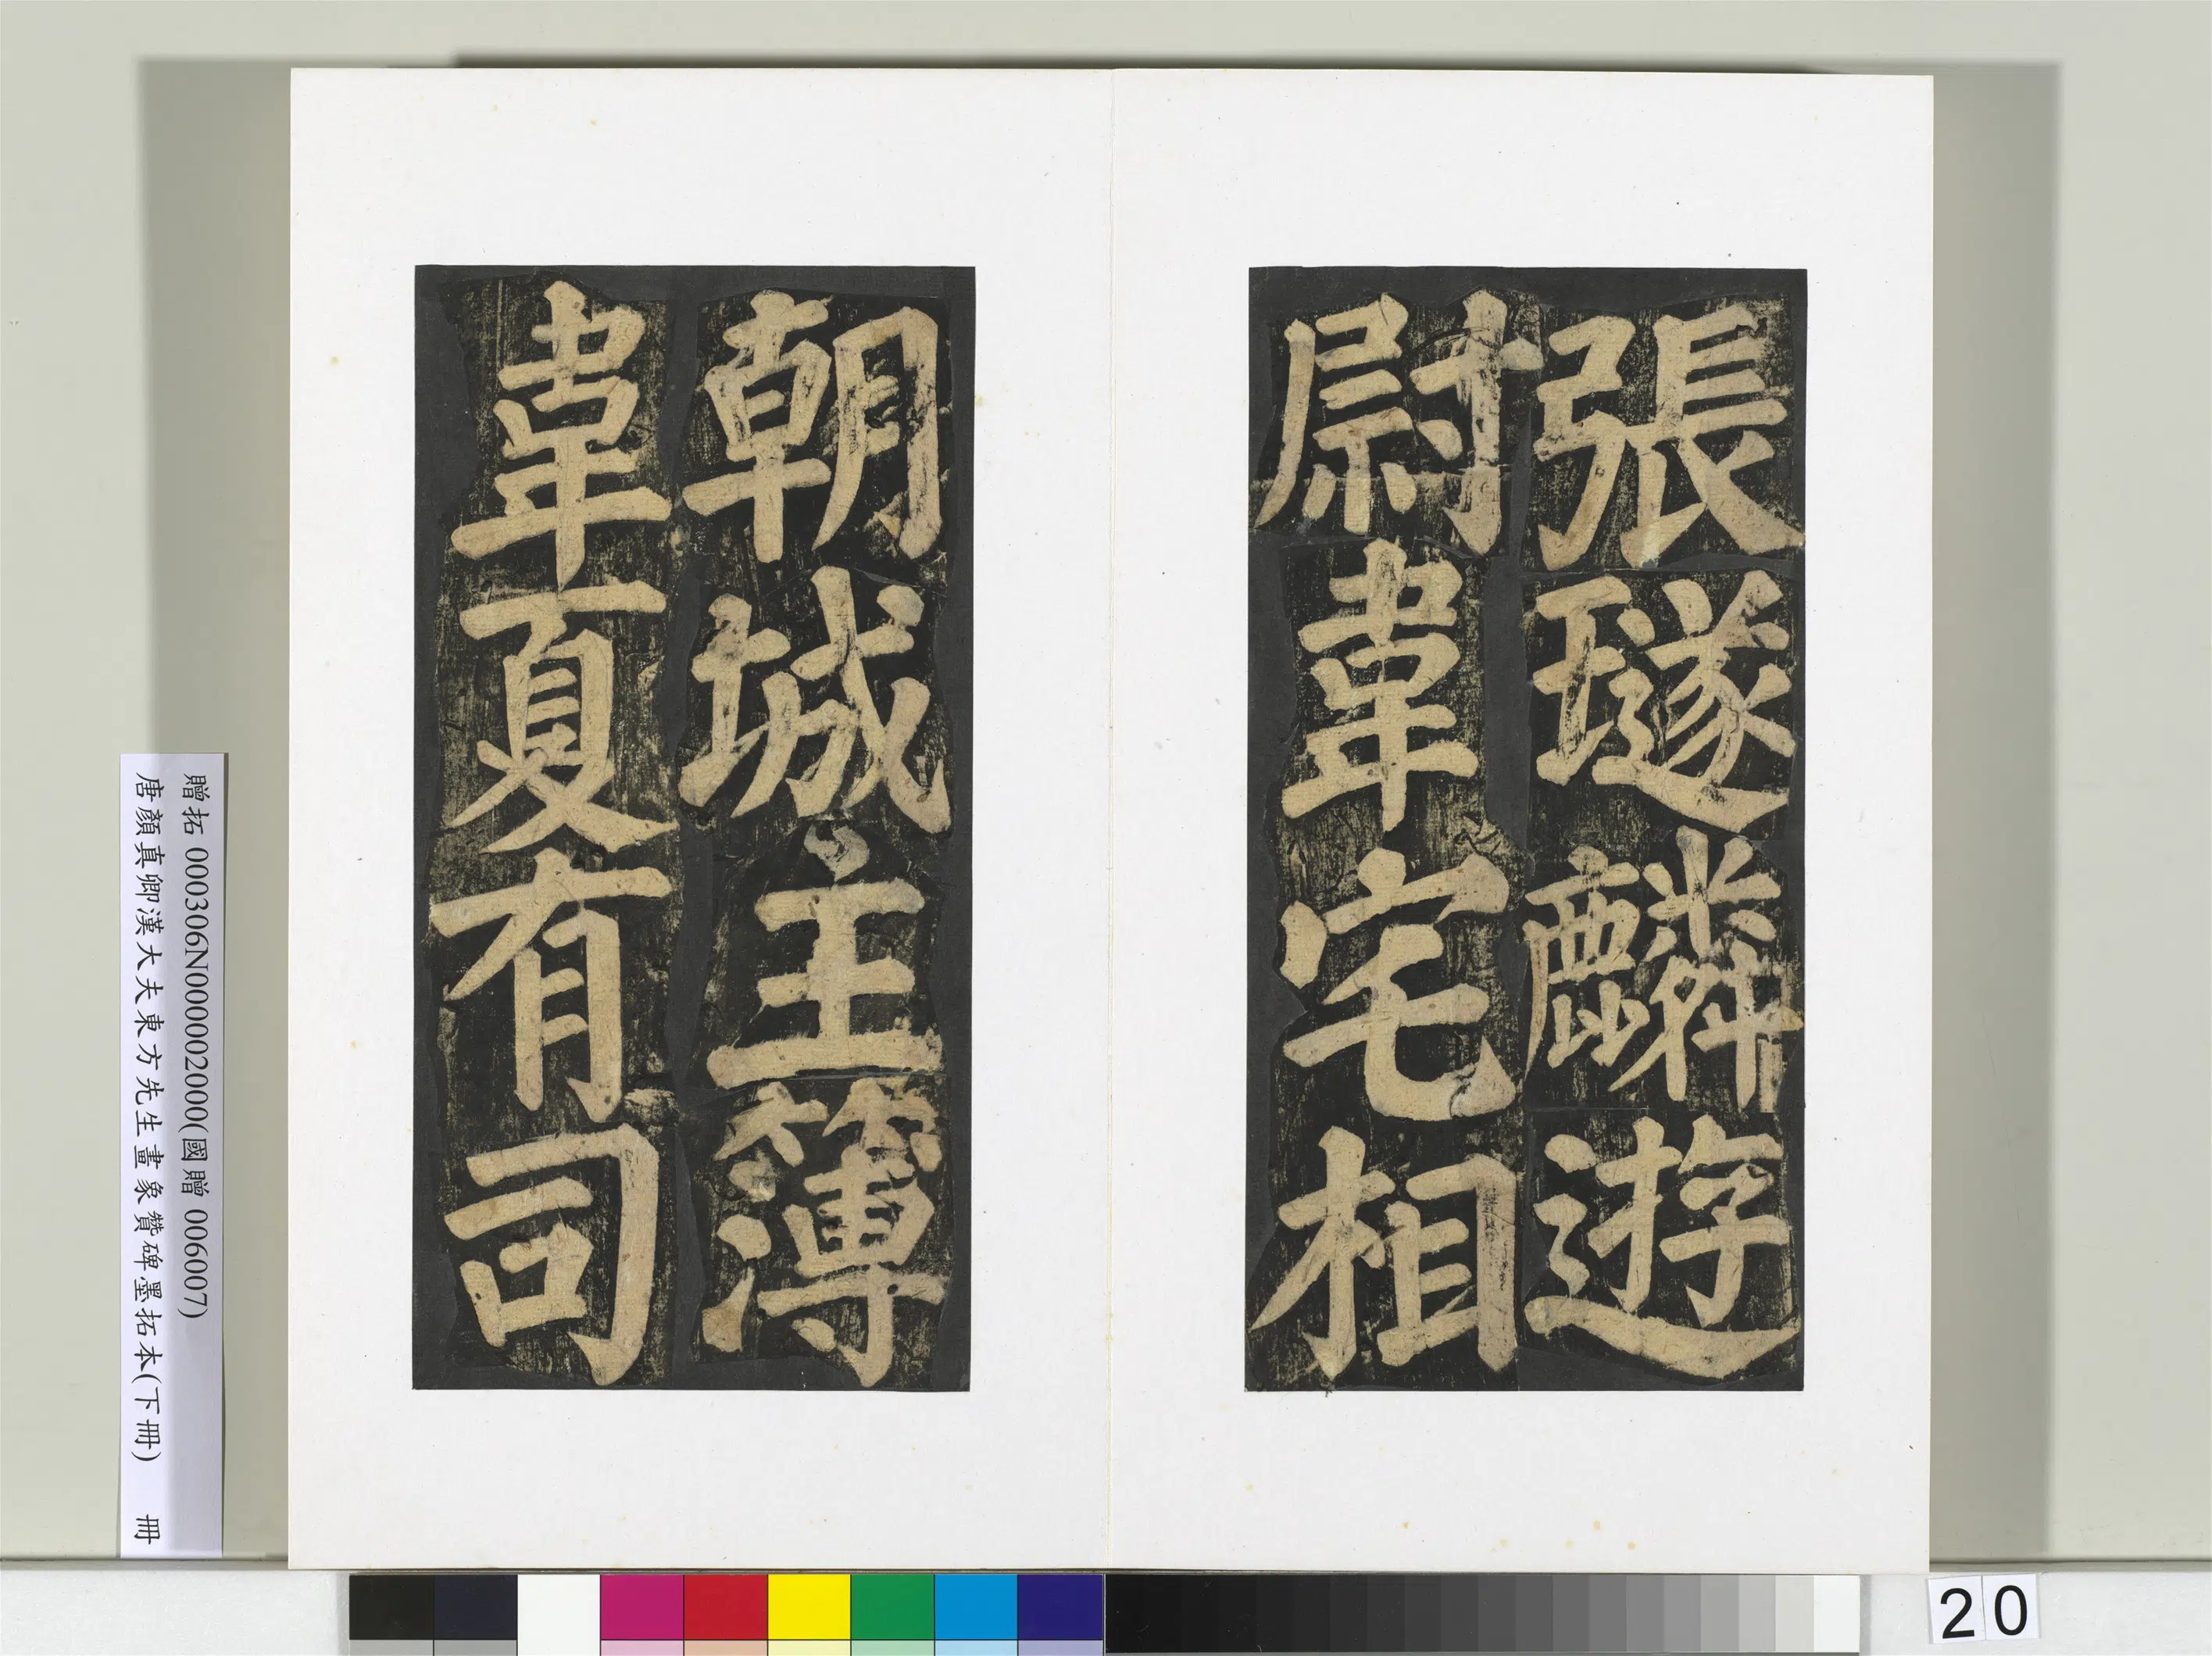 張璲麟遊
尉韋宅相
朝城主簿
韋夏有司
贈拓 000306N000002000(國贈 006007)
唐顏真卿漢大夫東方先生畫象贊碑墨拓本(下冊) 冊
20